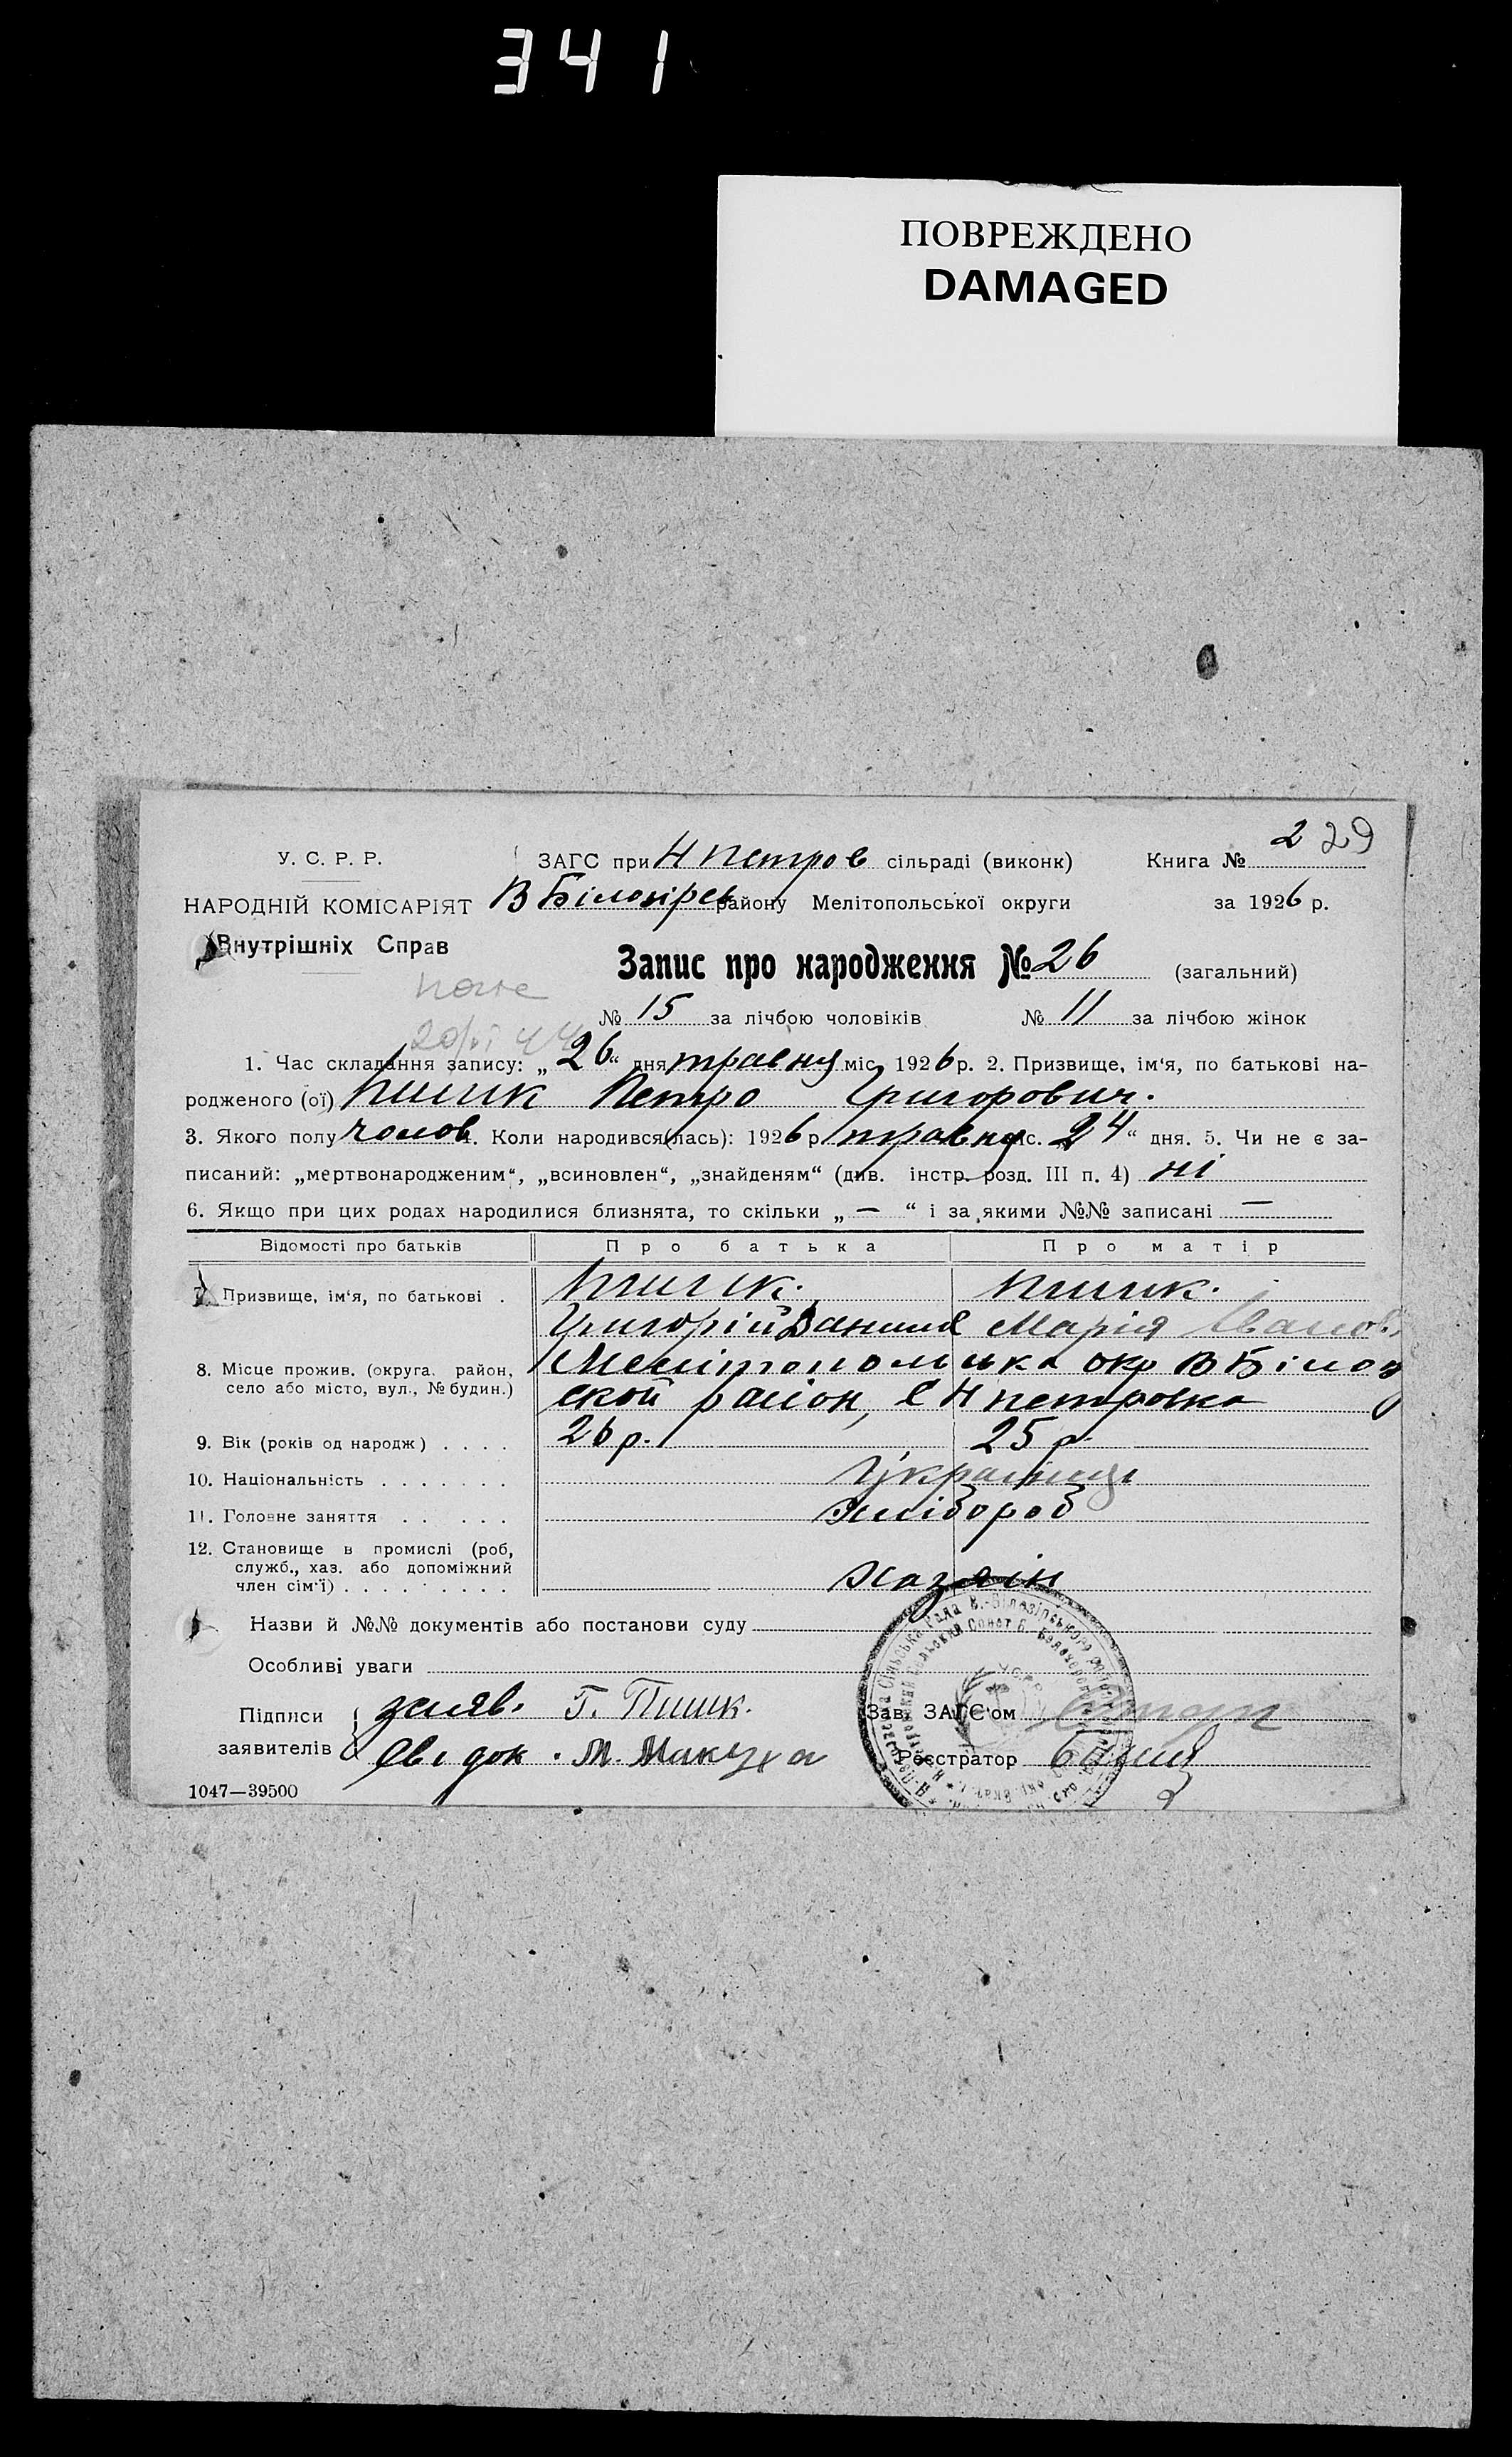 341
ПОВРЕЖДЕНО
DAMAGED
229
У. С. Р. Р. ЗАГС при Н Петров сільраді (виконк) Книга № 2
НАРОДНІЙ КОМІСАРІЯТ В Білозірськ району Мелітопольської округи за 1926 р.
Внутрішніх Справ
Запис про народження № 26 (загальний)
№ 15 за лічбою чоловіків № 11 за лічбою жінок
1. Час складання запису: „26“ дня травня міс. 1926 р. 2. Призвище, ім‘я, по батькові на-
родженого (ої) Пшик Петро Григорович.
3. Якого полу чолов 4. Коли народився(лась): 1926 р. травня міс. „24“ дня. 5. Чи не є за-
писаний: „мертвонародженим“, „всиновлен“, „знайденям“ (див. інстр. розд. III п. 4) ні
6. Якщо при цих родах народилися близнята, то скільки „ — “ і за якими №№ записані —
Відомості про батьків Про батька Про матір
7. Призвище, ім‘я, по батькові . Пшик. Пшик.
Григорій Данил Марія Іванов.
8. Місце прожив. (округа, район, село або місто, вул., № будин.) Мелітопольська окр В Білоз
ской район, с Н петровка
9. Вік (років од народж) . . . . 26 р. 25 р.
10. Національність . . . . . . . Українці
11. Головне заняття . . . . . хлібороб
12. Становище в промислі (роб, служб., хаз. або допоміжний член сім‘ї) . . . . . . . . . хазяін
Назви й №№ документів або постанови суду
Особливі уваги
Підписи заявителів заяв. Г. Пшик. Зав. ЗАГС‘ом
Свідок. М. Макуха Реєстратор
1047—39500